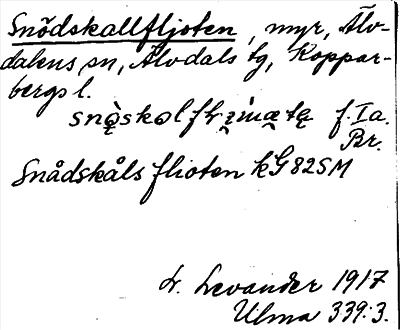 Snödskallfljoten, myr, Älv-
dalens sn, Älvdals tg, Koppar-
bergs l.
f. Ia.
Br.
Snådskåls flioten kG 82SM
L. Levander 1917
Ulma 339:3.